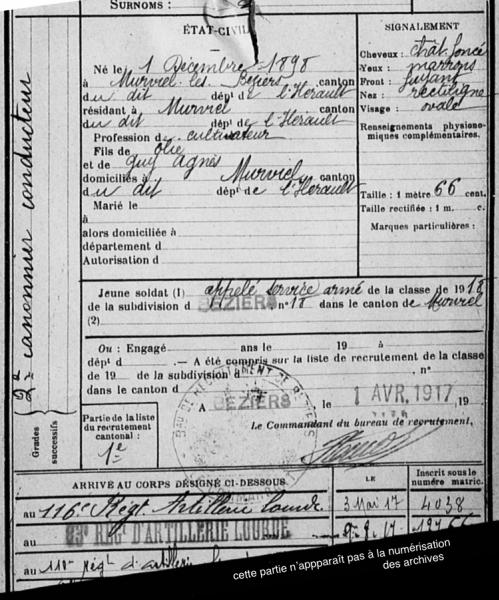 SURNOMS :
ÉTAT-CIVIL
Né le 1 Décembre 1898
à Murviel les Béziers, canton
du dit dépt de l'Hérault
résidant à Murviel canton
du dit dépt de l'Hérault
Profession de cultivateur
Fils de Élie
et de Guy Agnès
domiciliés à Murviel canton
du dit dépt de l'Hérault
Marié le
à
alors domiciliée à
département d
Autorisation d
SIGNALEMENT
Cheveux : chât. foncé
Yeux : marrons
Front : fuyant
Nez : rectiligne
Visage : ovale
Renseignements physionomiques complémentaires.
Taille : 1 mètre 66 cent.
Taille rectifiée : 1 m. c.
Marques particulières :
Jeune soldat (1) appelé service armé de la classe de 1918
de la subdivision d BEZIERS, n° 18 dans le canton de Murviel
(2)
Ou : Engagé ans le 19 à
dépt d .— A été compris sur la liste de recrutement de la classe
de 19 de la subdivision d , n°
dans le canton d
A BEZIERS le 1 AVR. 1917 19
Le Commandant du bureau de recrutement,
Partie de la liste
du recrutement
cantonal :
1e
Grades
successifs
2e canonnier conducteur
ARRIVÉ AU CORPS DÉSIGNÉ CI-DESSOUS.
LE
Inscrit sous le
numéro matric.
au 116e Régt Artillerie lourde 3 Mai 17 4038
au 83e REGt D'ARTILLERIE LOURDE 9.9.17
au 110e Régt d'artillerie
cette partie n'appparaît pas à la numérisation
des archives